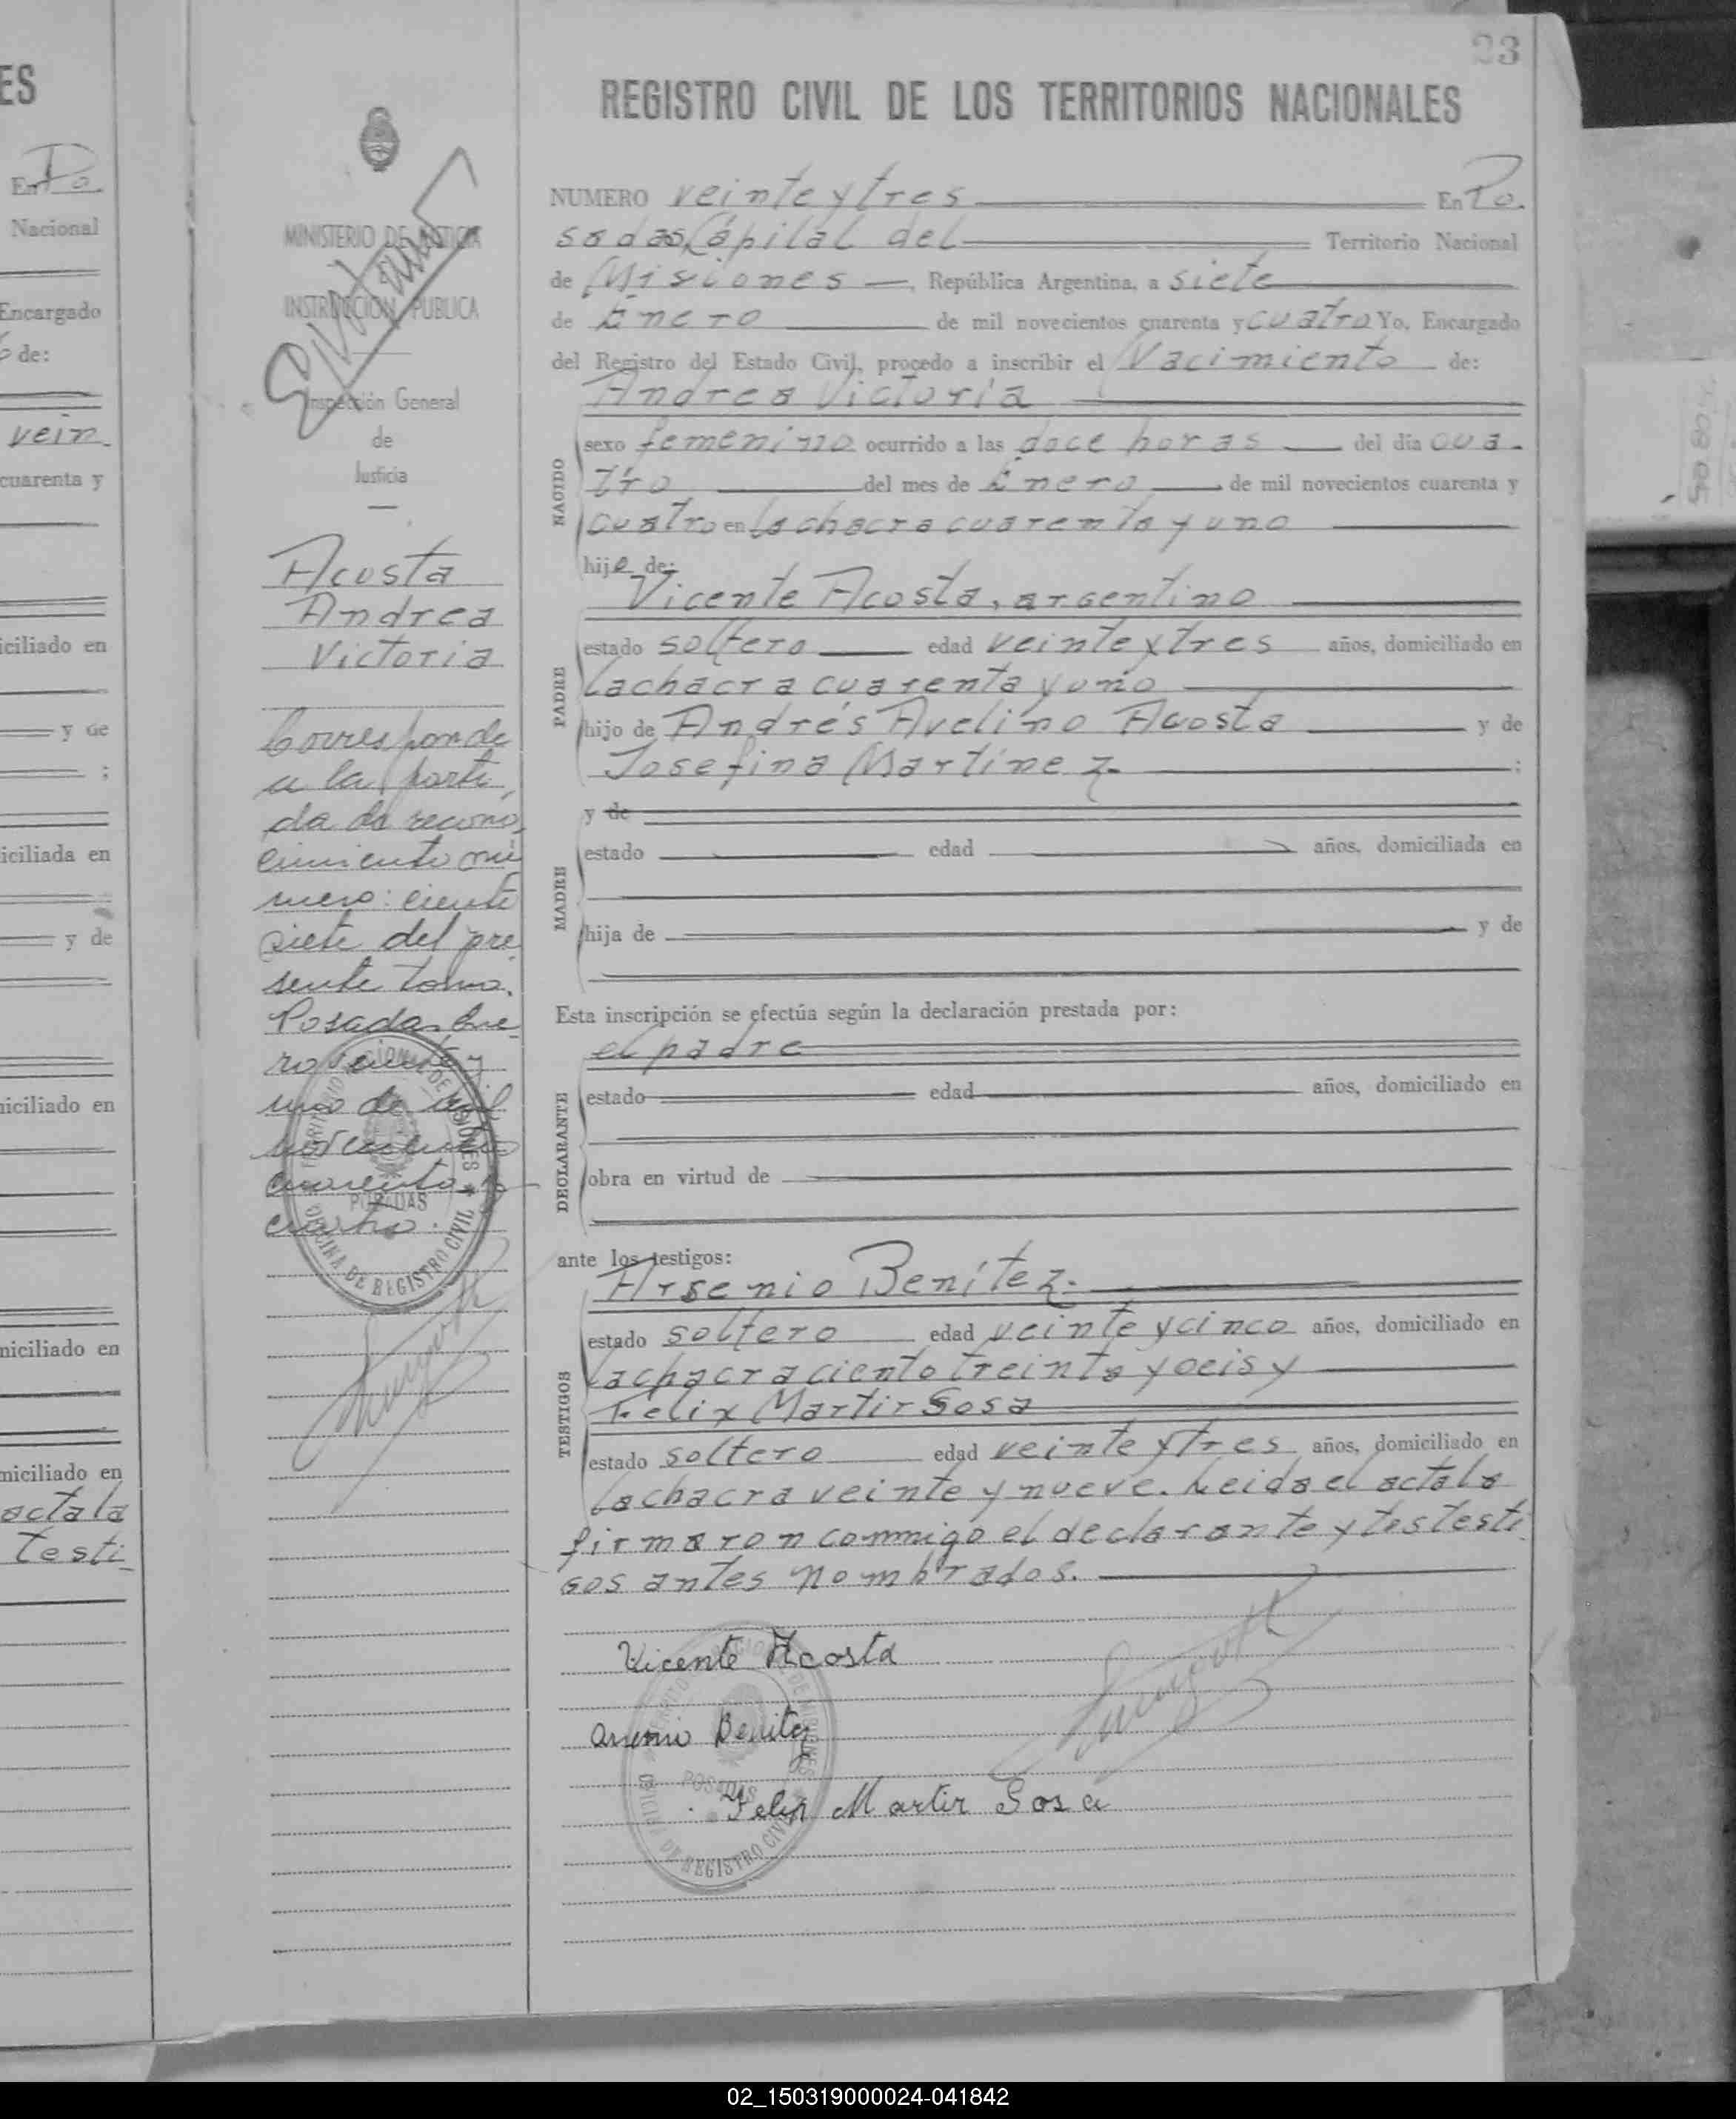 ES
En Po.
Nacional
Encargado
de:
vein.
cuarenta y
iciliado en
y de
;
iciliada en
y de
niciliado en
niciliado en
niciliado en
acta la
testi
23
REGISTRO CIVIL DE LOS TERRITORIOS NACIONALES
MINISTERIO DE JUSTICIA
INSTRUCCION PUBLICA
Inspección General
de
Justicia
Acosta
Andrea
Victoria
Corresponde
a la parti
da de recono
cimiento nú
mero: ciento
siete del pre
sente tomo.
Posadas Ene
ro veinte y
uno de mil
novecientos
cuarenta y
cuatro.
NUMERO veinte y tres En Po.
sadas, Cápital del Territorio Nacional
de Misiones, República Argentina, a siete
de Enero de mil novecientos cuarenta y cuatro Yo, Encargado
del Registro del Estado Civil, procedo a inscribir el Nacimiento de:
NACIDO
Andrea Victoria
sexo femenino ocurrido a las doce horas del día cua-
tro del mes de Enero de mil novecientos cuarenta y
cuatro en la chacra cuarenta y uno
hija de:
PADRE
Vicente Acosta, argentino
estado soltero edad veinte y tres años, domiciliado en
la chacra cuarenta y uno
hijo de Andrés Avelino Acosta y de
Josefina Martínez. ;
MADRE
y de
estado edad años, domiciliada en
hija de y de
Esta inscripción se efectúa según la declaración prestada por:
DECLARANTE
el padre
estado edad años, domiciliado en
obra en virtud de
ante los testigos:
TESTIGOS
Arsenio Benítez.
estado soltero edad veinte y cinco años, domiciliado en
la chacra ciento treinta y seis y
Felix Martir Sosa
estado soltero edad veinte y tres años, domiciliado en
la chacra veinte y nueve. Leida el acta la
firmaron conmigo el declarante y los testi
gos antes nombrados.
Vicente Acosta
Arsenio Benitez
Felix Martir Sosa
TERRITORIO NACIONAL DE MISIONES
POSADAS
OFICINA DE REGISTRO CIVIL
02_150319000024-041842